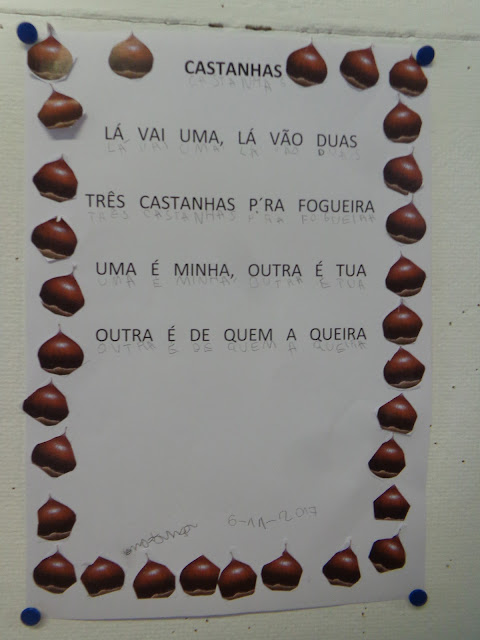 CASTANHAS
CASTANHAS
LÁ VAI UMA, LÁ VÃO DUAS
LÁ VAI UMA, LÁ VÃO DUAS
TRÊS CASTANHAS P´RA FOGUEIRA
TRÊS CASTANHAS P´RA FOGUEIRA
UMA É MINHA, OUTRA É TUA
UMA É MINHA, OUTRA É TUA
OUTRA É DE QUEM A QUEIRA
OUTRA É DE QUEM A QUEIRA